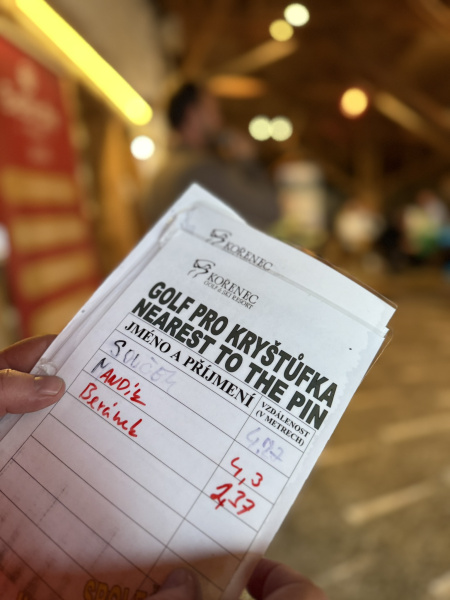 KOŘENEC
KOŘENEC
GOLF & SKI RESORT
GOLF PRO KRYŠTŮFKA
NEAREST TO THE PIN
JMÉNO A PŘÍJMENÍ VZDÁLENOST (V METRECH)
SOUČEK
MANDÍK 4,3
Beránek 2,37